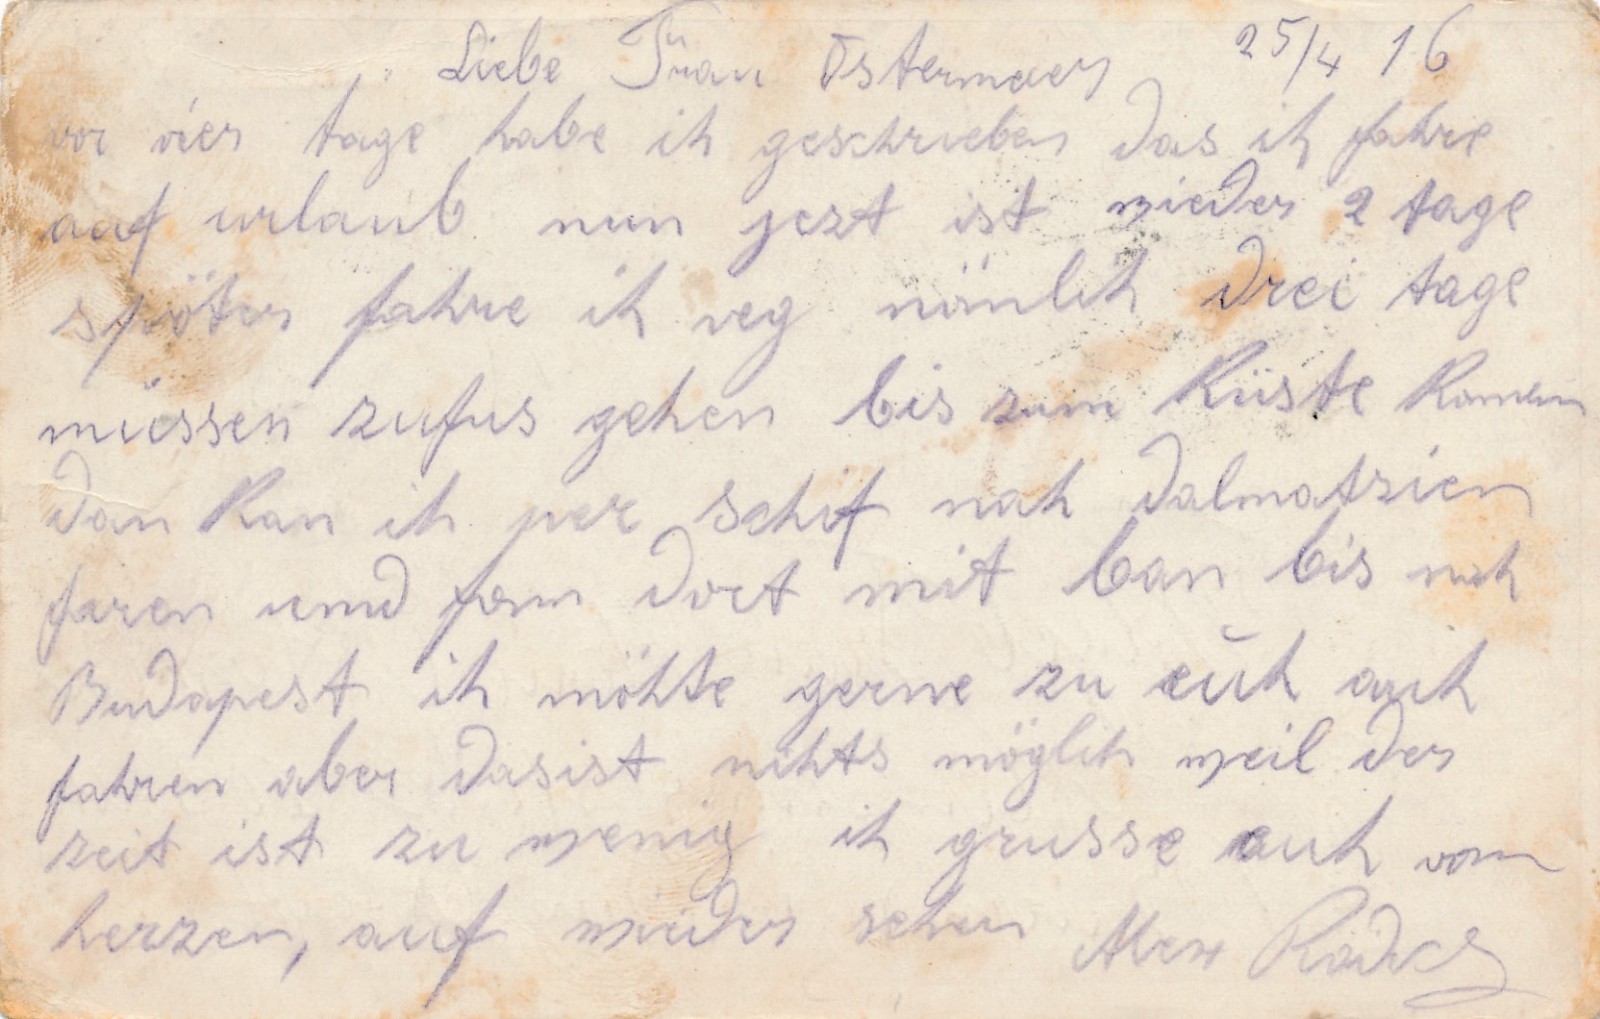 Liebe Frau Östermaer 25/4 16
vor vier tage habe ih geschrieben das ih fahre
auf urlaub nun jezt ist wieder 2 tage
später fahre ih veg nömlih drei tage
müssen zufus gehen bis zum Küste
dan kan ih per schif nah Dalmatzien
faren und fom dort mit ban bis nah
Budapest ih möhte gerne zu euh auh
fahren aber dasist nihts möglih weil der
zeit ist zu wenig ih grusse euh vom
herzen, auf wieder sehen Alex